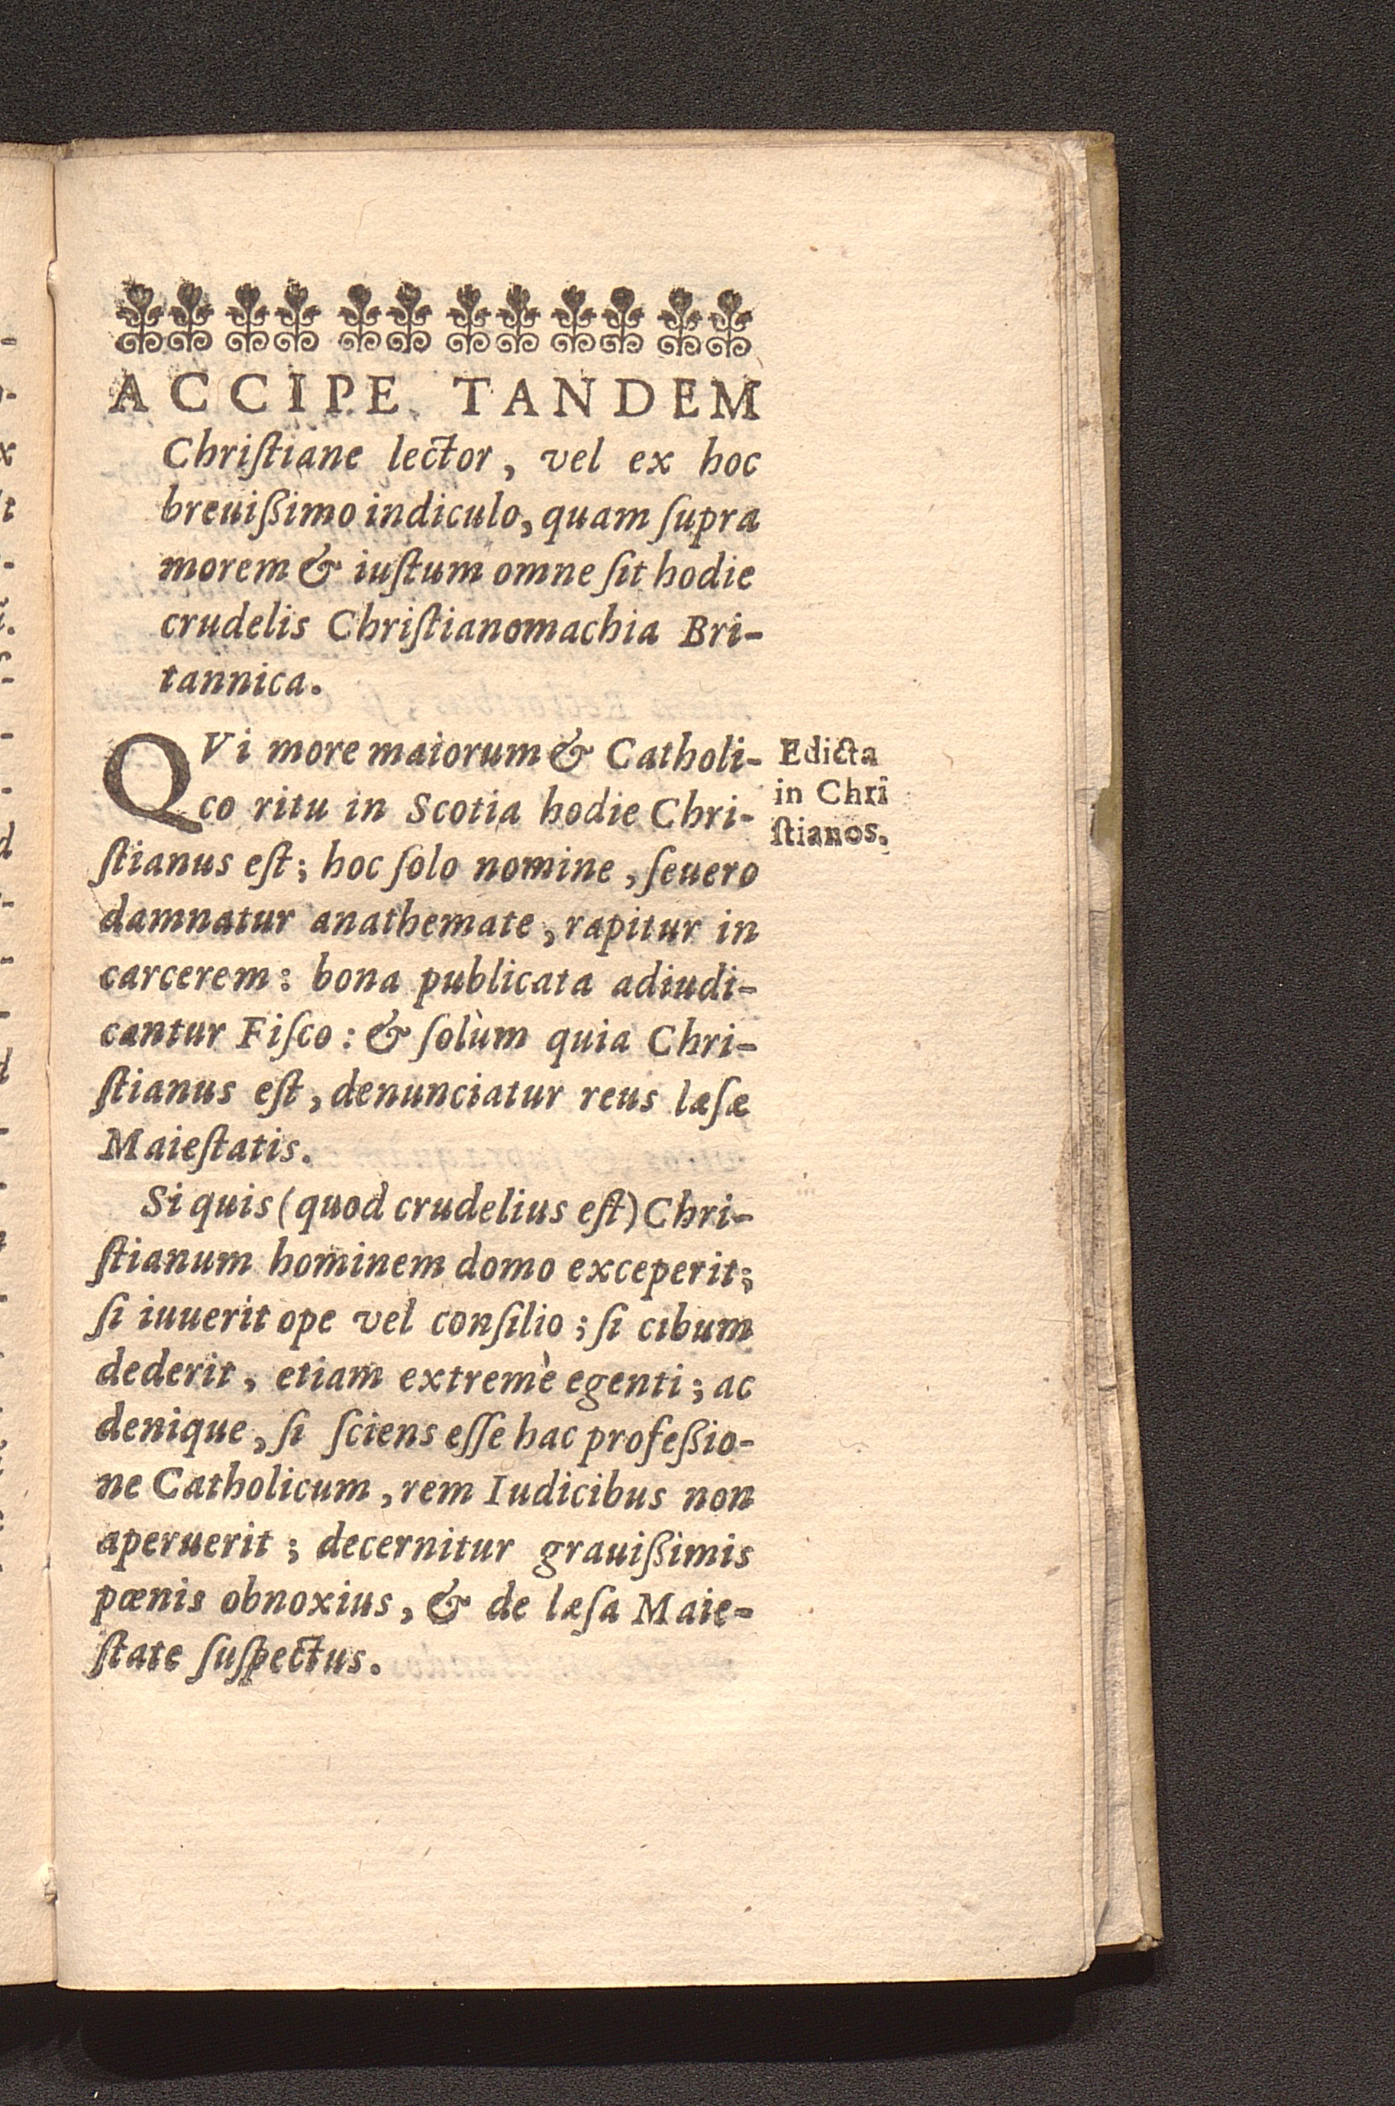 ACCIPE TANDEM
Chriſtiane lector, vel ex hoc
breuißimo indiculo, quam ſupra
morem & iuſtum omne ſit hodie
crudelis Chriſtianomachia Bri-
tannica.
QVi more maiorum & Catholi-
co ritu in Scotia hodie Chri-
ſtianus eſt; hoc ſolo nomine, ſeuero
damnatur anathemate, rapitur in
carcerem: bona publicata adiudi-
cantur Fiſco: & ſolùm quia Chri-
ſtianus eſt, denunciatur reus læſæ
Maieſtatis.
Si quis (quod crudelius eſt) Chri-
ſtianum hominem domo exceperit;
ſi iuuerit ope vel conſilio; ſi cibum
dederit, etiam extremè egenti; ac
denique, ſi ſciens eſſe hac profeßio-
ne Catholicum, rem Iudicibus non
aperuerit; decernitur grauißimis
pœnis obnoxius, & de læſa Maie-
ſtate ſuſpectus.
Edicta
in Chri
ſtianos.